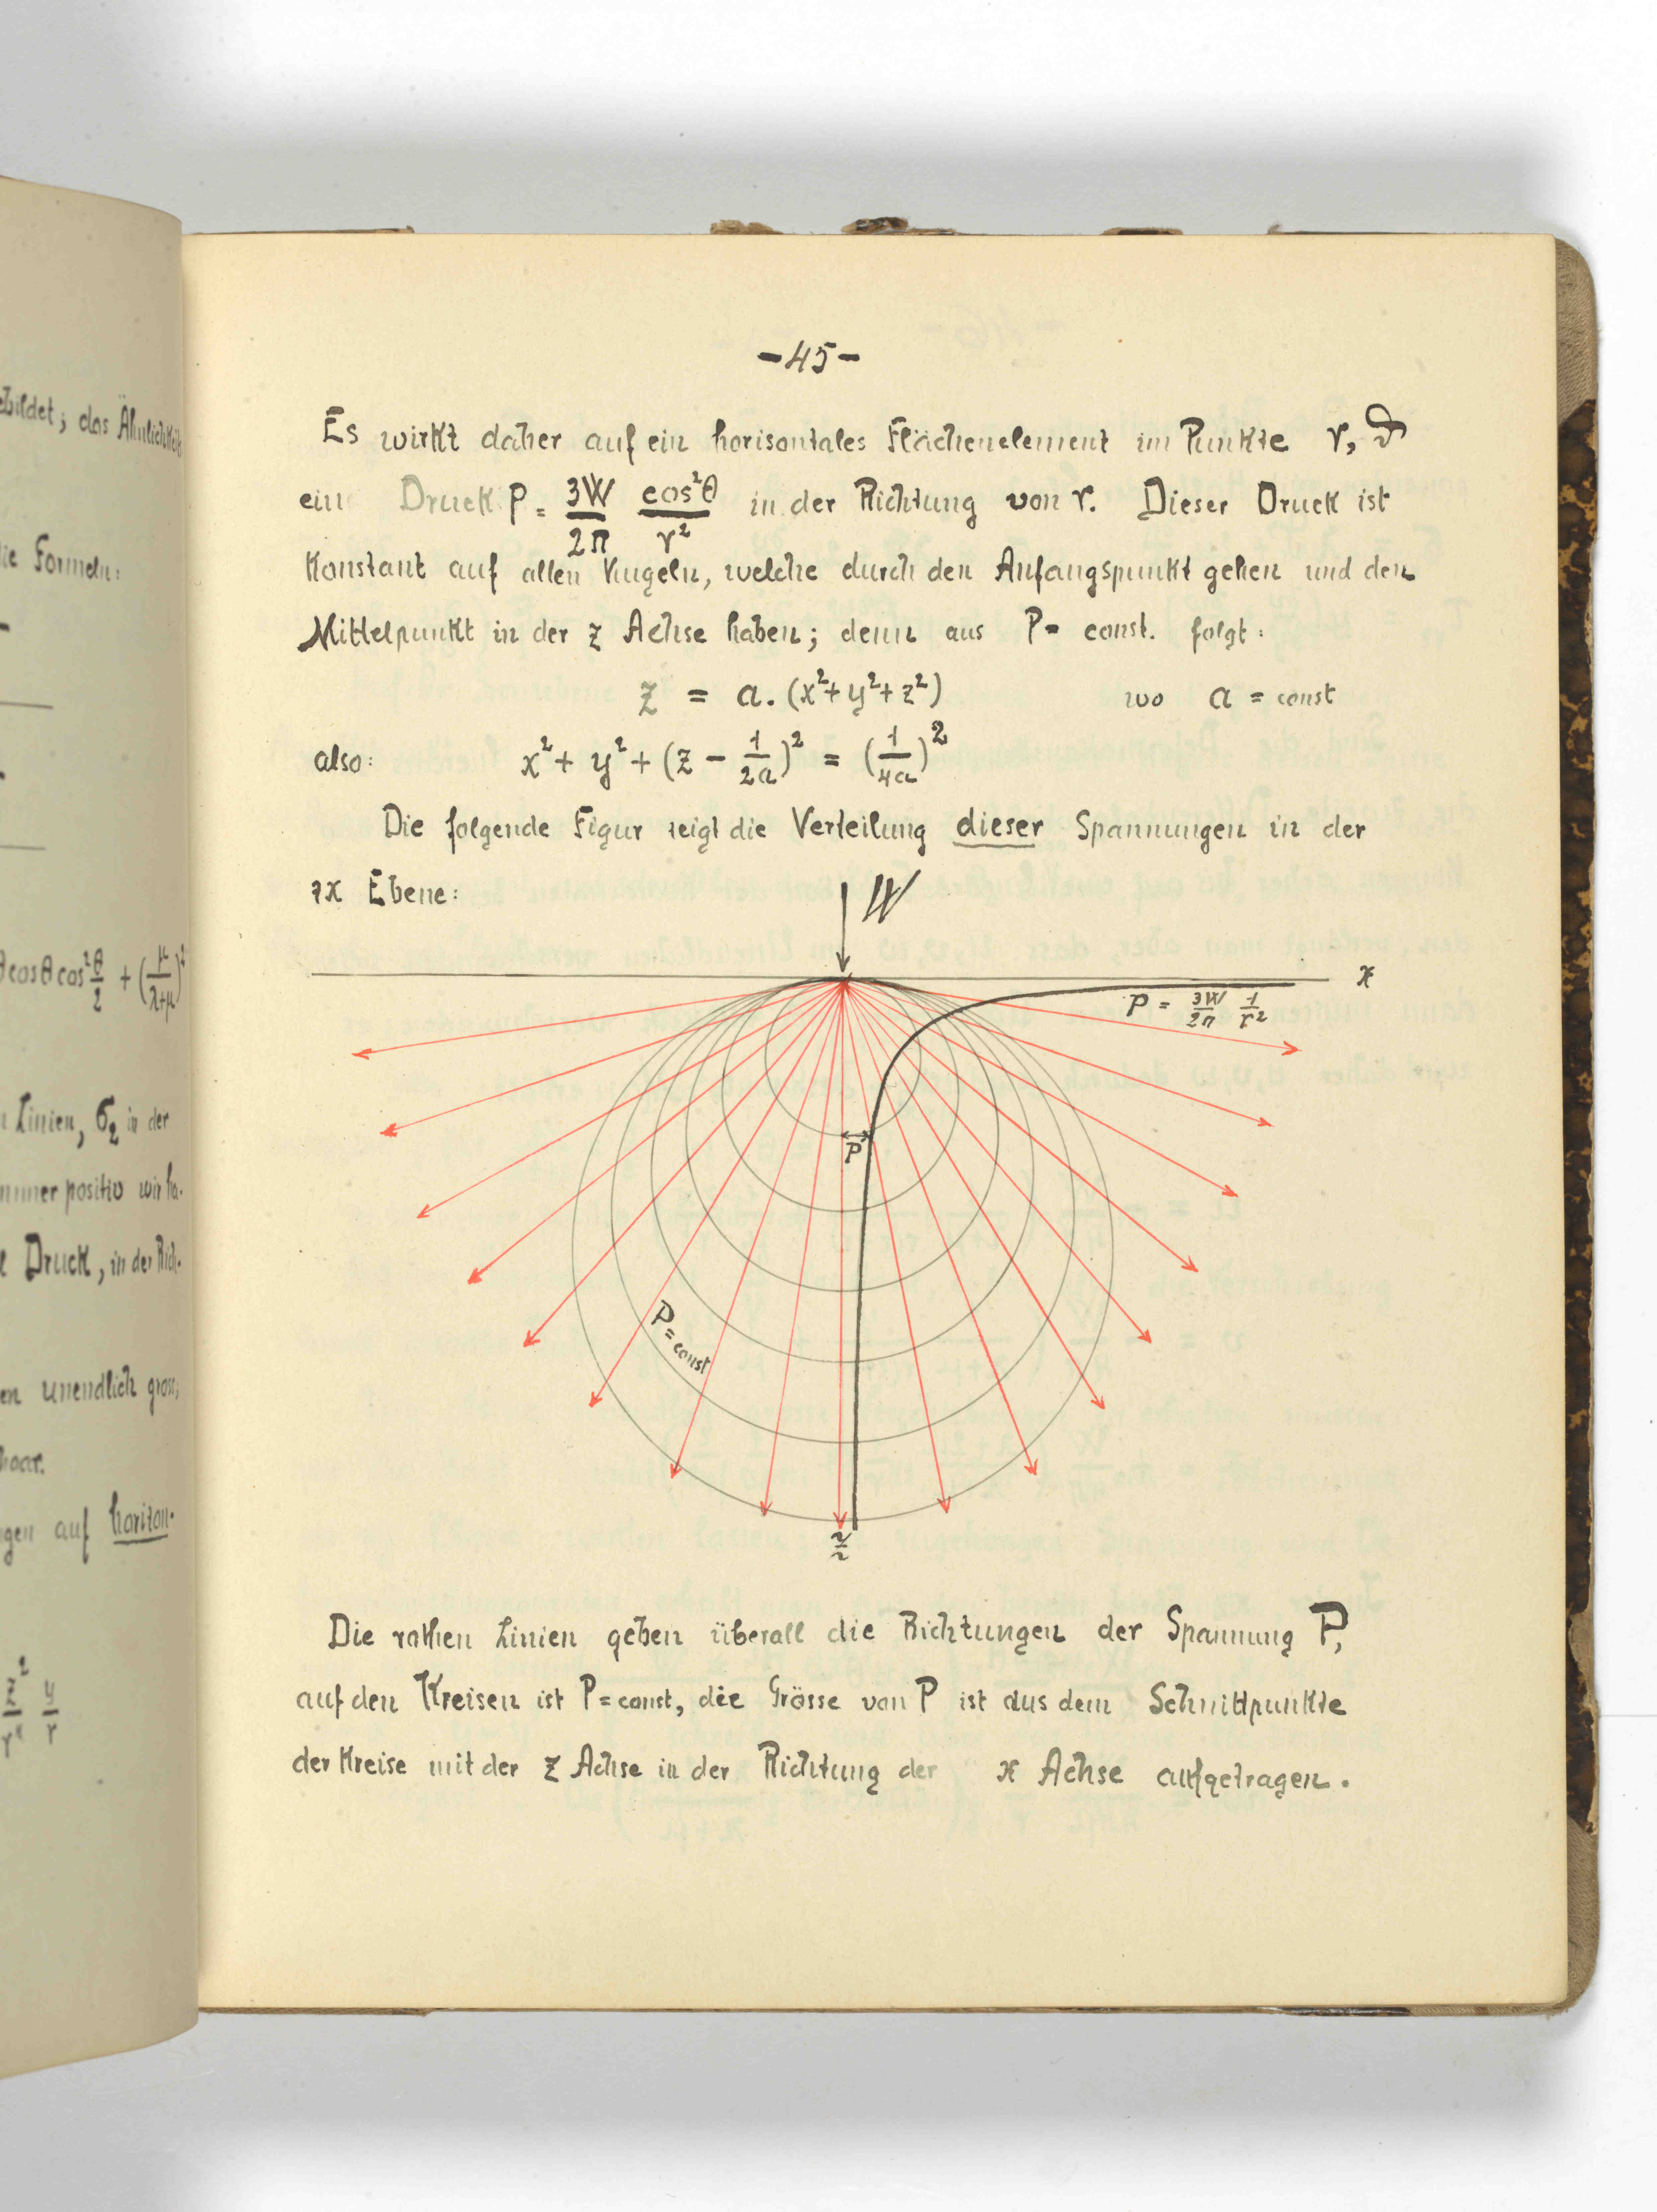 ebildet; das Ähnlichkeits
die Formeln:
θ cosθ cos²θ/2 + (μ/(λ+μ))²
Linien, σ₂ in der
immer positiv wir ha-
Druck, in der Rich-
en unendlich gross;
gen auf horizon-
z²/r² y/r
-45-
Es wirkt daher auf ein horisontales Flächenelement im Punkte r, ϑ
ein Druck P = 3W/2π cos²θ/r² in der Richtung von r. Dieser Druck ist
Konstant auf allen Kugeln, welche durch den Anfangspunkt gehen und den
Mittelpunkt in der z Achse haben; denn aus P = const. folgt:
z = a.(x²+y²+z²) wo a = const
also: x² + y² + (z - 1/2a)² = (1/4a)²
Die folgende Figur zeigt die Verteilung dieser Spannungen in der
zx Ebene:
W
x
P = 3W/2π 1/r²
P
P = const
z
Die rothen Linien geben überall die Richtungen der Spannung P,
auf den Kreisen ist P = const, die Grösse von P ist aus dem Schnittpunkte
der Kreise mit der z Achse in der Richtung der x Achse aufgetragen.